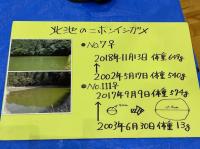 北池のニホンイシガメ
●No.7♀
2018年11月13日 体重649g
↑
2002年5月17日 体重540g
●No.111♀
2017年9月9日 体重594g
↑
2003年6月30日 体重13g